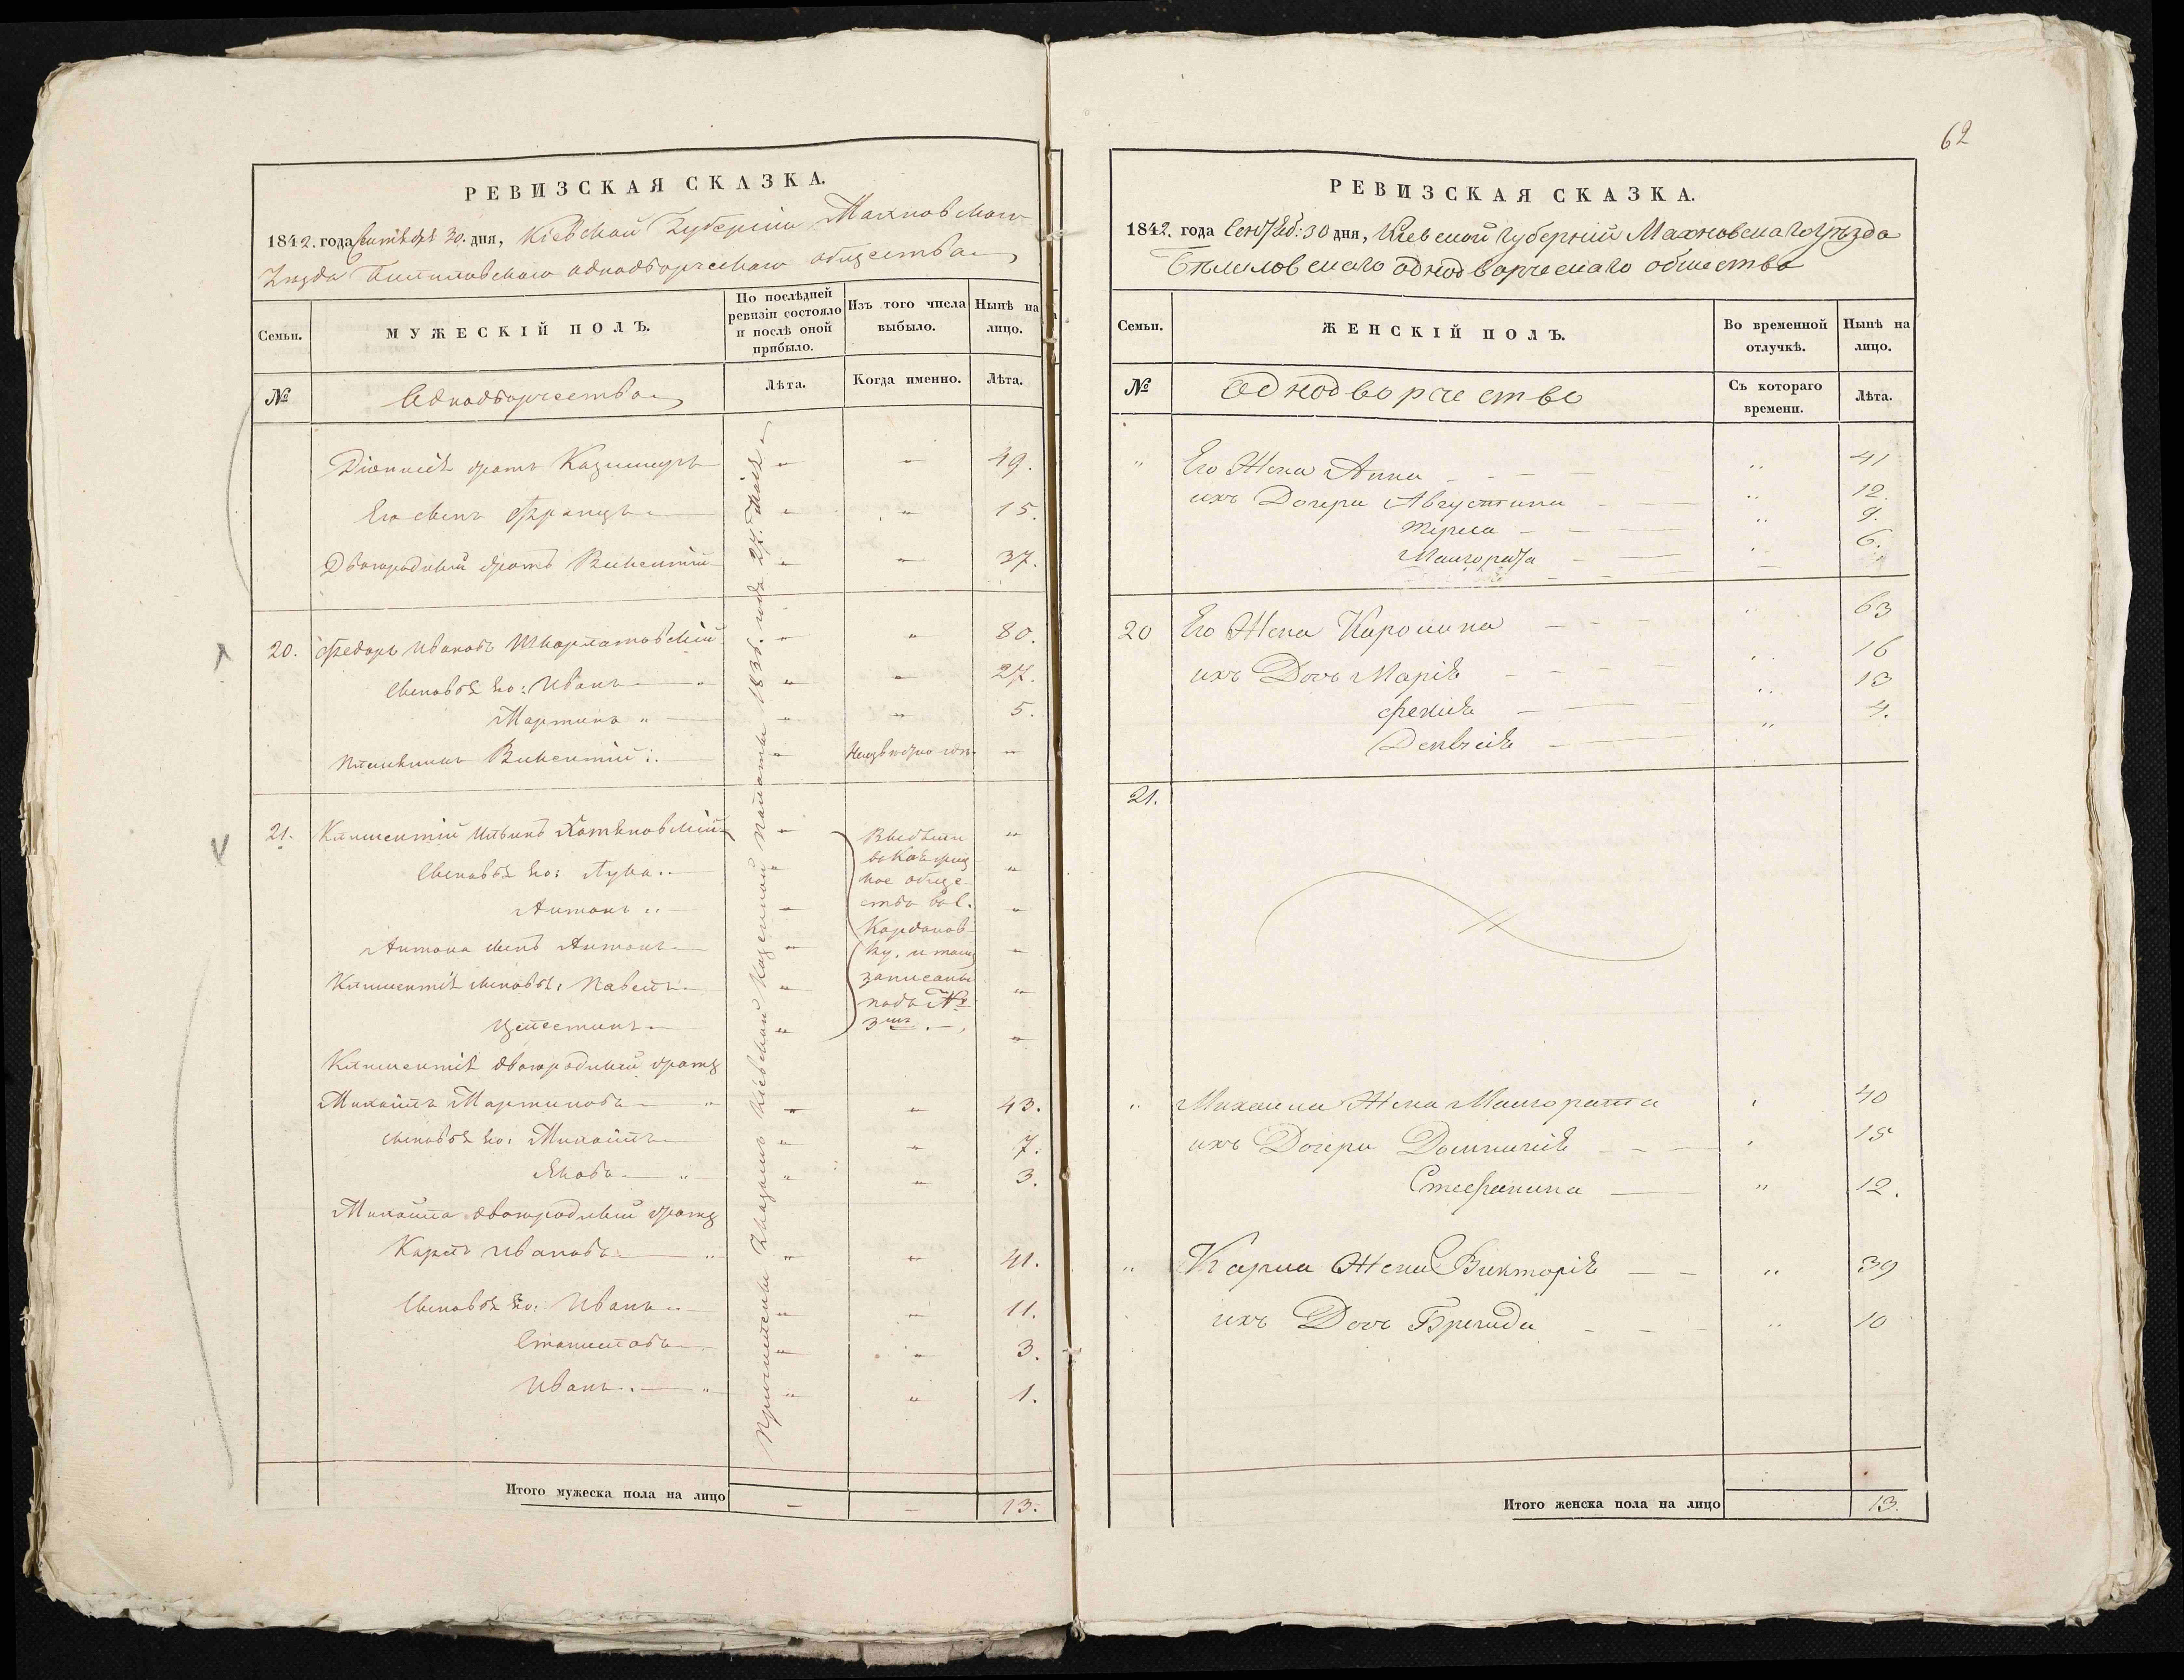 62
РЕВИЗСКАЯ СКАЗКА.
1842. года Сентября 30. дня, Кіевской Губерніи Махновского
Уезда Билиловского однодворческого общества
Семьи.
МУЖЕСКІЙ ПОЛЪ.
По послѣдней ревизіи состояло и послѣ оной прибыло.
Изъ того числа выбыло.
Нынѣ на лицо.
№
Однодворчества
Лѣта.
Когда именно.
Лѣта.
Діонисія братъ Казимиръ " " 49.
Его сынъ Францъ " " 15.
Двоюродный братъ Викентій " " 37.
20. Федоръ Ивановъ " " 80.
Сыновья Его: Иванъ " " 27.
Мартинъ " " 5.
Племянникъ Викентій "
21. Климентій Ильинъ " "
Сыновья Его: Лука " "
Антонъ " "
Антона сынъ Антонъ " "
Климентія сыновья: Павелъ " "
Целестинъ " "
Климентія двоюродный братъ
Михайлъ Мартиновъ " " 43.
сыновья Его: Михайлъ " " 7.
Яковъ " " 3.
Михайла двоюродный братъ
Карлъ Ивановъ " " 41.
Сыновья Его: Иванъ " " 11.
Станиславъ " " 3.
Иванъ " " 1.
общество въ с.
и тамъ
записаны
подъ №
3мъ
Причислены Указомъ Кіевской Казенной Палаты 1836. года 27. Маія
Итого мужеска пола на лицо — — 13.
РЕВИЗСКАЯ СКАЗКА.
1842. года Сентяб: 30 дня, Кіевской Губерніи Махновскаго Уѣзда
Бѣлиловскаго однодворческаго общества
Семьи.
ЖЕНСКІЙ ПОЛЪ.
Во временной отлучкѣ.
Нынѣ на лицо.
№
Однодворчество
Съ котораго времени.
Лѣта.
" Его Жена Анна " 41
ихъ Дочери Августина " 12.
Тереса " 9.
Малгората " 6.
20 Его Жена Каролина " 63
ихъ Дочь Марія " 16
Фелиція " 13
" 4.
21.
" Михаила Жена Малгоратта " 40
ихъ Дочери Доминиція " 15
Стефанина " 12.
" Карла Жена Викторія " 39
ихъ Дочь Бригида " 10
Итого женска пола на лицо 13.